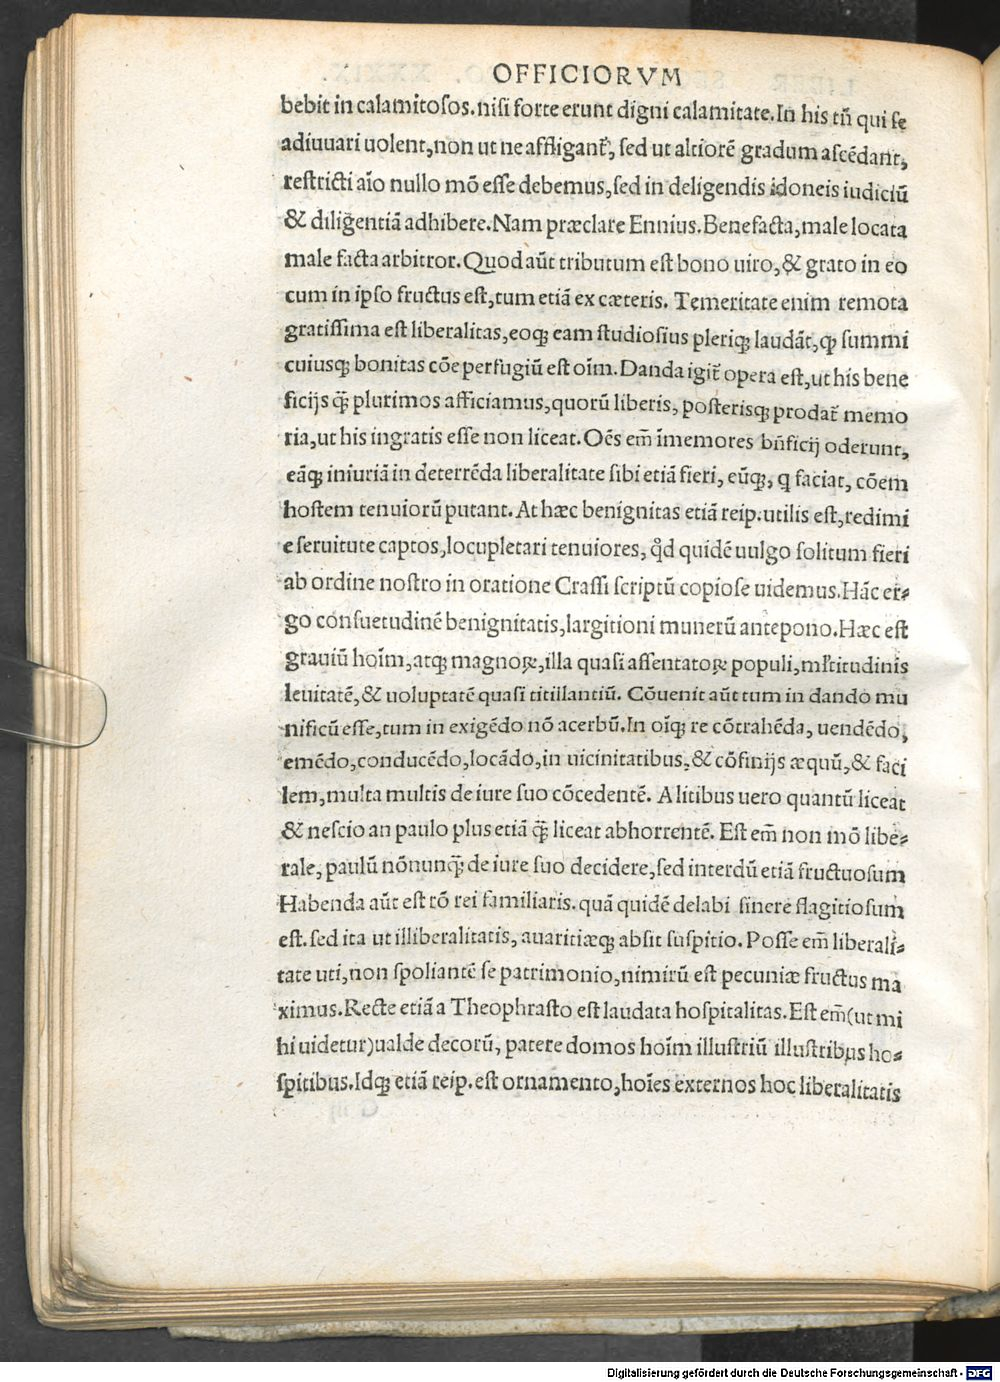 OFFICIORVM
bebit in calamitosos. nisi forte erunt digni calamitate. In his tñ qui se
adiuuari uolent, non ut ne affligant᷑, sed ut altiorē gradum ascēdant,
restricti aīo nullo mō esse debemus, sed in deligendis idoneis iudiciū
& diligentiā adhibere. Nam præclare Ennius. Benefacta, male locata
male facta arbitror. Quod aūt tributum est bono uiro, & grato in eo
cum in ipso fructus est, tum etiā ex cæteris. Temeritate enim remota
gratissima est liberalitas, eoqꝫ eam studiosius pleriqꝫ laudāt, ꝙ summi
cuiusqꝫ bonitas cōe perfugiū est oīm. Danda igit᷑ opera est, ut his bene
ficijs q̄ꝫ plurimos afficiamus, quorū liberis, posterisqꝫ prodat᷑ memo
ria, ut his ingratis esse non liceat. Oēs em̄ īmemores bñficij oderunt,
eāqꝫ iniuriā in deterrēda liberalitate sibi etiā fieri, eūqꝫ, q faciat, cōem
hostem tenuiorū putant. At hæc benignitas etiā reip. utilis est, redimi
e seruitute captos, locupletari tenuiores, qd̛ quidē uulgo solitum fieri
ab ordine nostro in oratione Crassi scriptū copiose uidemus. Hāc er⸗
go consuetudinē benignitatis, largitioni munerū antepono. Hæc est
grauiū hoīm, atqꝫ magnoꝝ, illa quasi assentatoꝝ populi, ml̄titudinis
leuitatē, & uoluptatē quasi titillantiū. Cōuenit aūt tum in dando mu
nificū esse, tum in exigēdo nō acerbū. In oīqꝫ re cōtrahēda, uendēdo,
emēdo, conducēdo, locādo, in uicinitatibus, & cōfinijs æquū, & faci
lem, multa multis de iure suo cōcedentē. A litibus uero quantū liceat
& nescio an paulo plus etiā q̄ꝫ liceat abhorrentē. Est em̄ non mō libe⸗
rale, paulū nōnunq̄ꝫ de iure suo decidere, sed interdū etiā fructuosum
Habenda aūt est rō rei familiaris. quā quidē delabi sinere flagitiosum
est. sed ita ut illiberalitatis, auaritiæqꝫ absit suspitio. Posse em̄ liberali⸗
tate uti, non spoliantē se patrimonio, nimirū est pecuniæ fructus ma
ximus. Recte etiā a Theophrasto est laudata hospitalitas. Est em̄ (ut mi
hi uidetur) ualde decorū, patere domos hoīm illustriū illustribus ho⸗
spitibus. Idqꝫ etiā reip. est ornamento, hoīes externos hoc liberalitatis
Digitalisierung gefördert durch die Deutsche Forschungsgemeinschaft - DFG